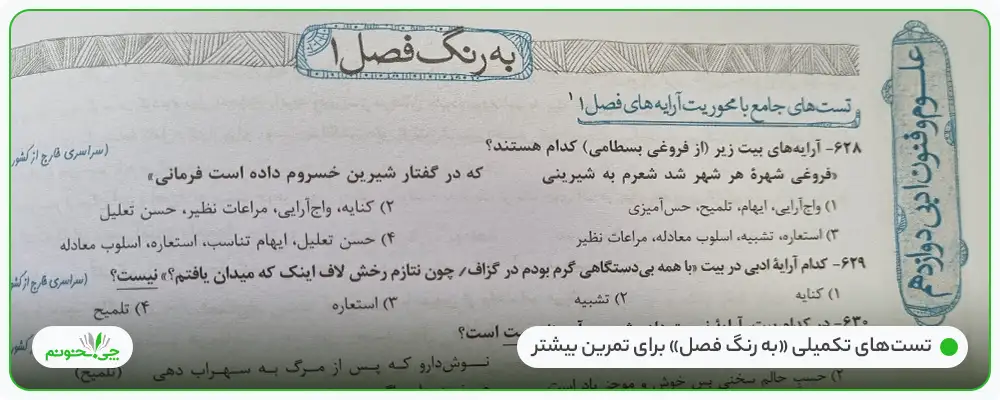 به رنگ فصل ۱
علوم و فنون ادبی دوازدهم
تست‌های جامع با محوریت آرایه‌های فصل ۱۱
۶۲۸- آرایه‌های بیت زیر (از فروغی بسطامی) کدام هستند؟ (سراسری خارج از کشور
«فروغی شهرهٔ هر شهر شد شعرم به شیرینی که در گفتار شیرین خسروم داده است فرمانی»
۱) واج‌آرایی، ایهام، تلمیح، حس‌آمیزی ۲) کنایه، واج‌آرایی، مراعات نظیر، حسن تعلیل
۳) استعاره، تشبیه، اسلوب معادله، مراعات نظیر ۴) حسن تعلیل، ایهام تناسب، استعاره، اسلوب معادله
۶۲۹- کدام آرایهٔ ادبی در بیت «با همه بی‌دستگاهی گرم بودم در گزاف/ چون نتازم رخش لاف اینک که میدان یافتم؟» نیست؟ (سراسری خارج از کشور
۱) کنایه ۲) تشبیه ۳) استعاره ۴) تلمیح
۶۳۰- در کدام بیت است؟
نوش‌دارو که پس از مرگ به سهراب دهی (تلمیح)
۲) حسب حالم سخنی بس خوش و موجز یاد است
تست‌های تکمیلی «به رنگ فصل» برای تمرین بیشتر
چی بخونم